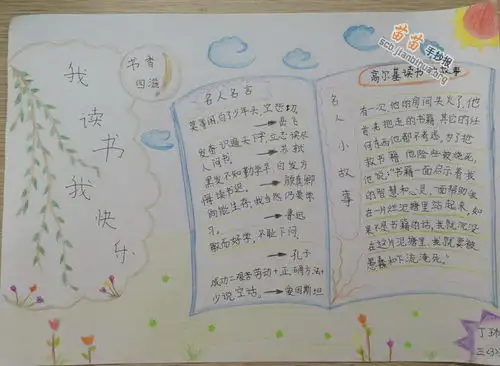 我
读
书
我
快
乐
书香
四溢
名人名言
莫等闲白了少年头,空悲切
→岳飞
发奋识遍天下字,立志读尽
人间书。→苏轼
黑发不知勤学早,白首方
悔读书迟。→颜真卿
倘能生存,我当然仍要学
习。→鲁迅
敏而好学,不耻下问。
→孔子
成功=艰苦劳动+正确方法+
少说空话。→爱因斯坦
高尔基读书 事
名人小故事
有一次,他的房间失火了,他
首先抱走的书籍,其它的任
何东西他都不考虑,为了抢
救书籍,他险些被烧死,
他说:"书籍一面启示着我
的智慧和心灵,一面帮助我
在一片烂泥塘里站起来,如
果不是书籍的话,我就沉没
在这片泥塘里,我就要被
愚蠢和下流淹死。"
苗苗
手抄报
丁
三(3)